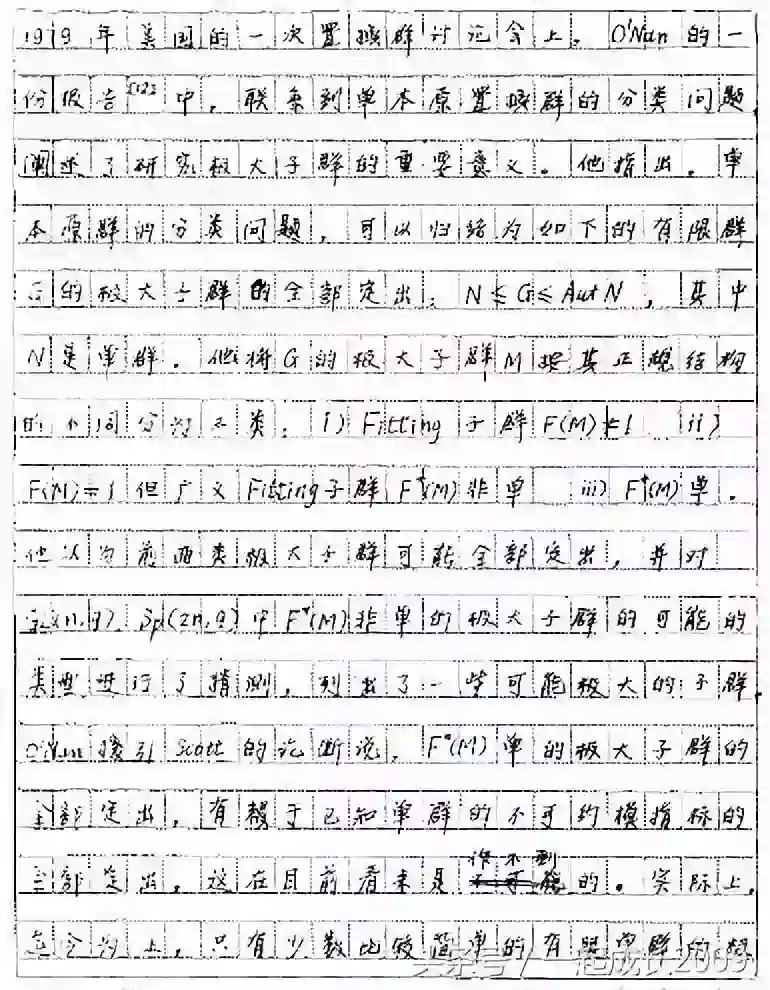 1979年美国的一次置换群讨论会上,O'Nan的一
份报告[12]中,联系到单本原置换群的分类问题
阐述了研究极大子群的重要意义。他指出,单
本原群的分类问题,可以归结为如下的有限群
G的极大子群的全部定出:N≤G≤AutN,其中
N是单群。他将G的极大子群M按其正规结构
的不同分为三类:i) Fitting子群F(M)≠1 ii)
F(M)=1但广义Fitting子群F*(M)非单 iii) F*(M)单。
他认为前两类极大子群可能全部定出,并对
(n,q), Sp(2n,q)中F*(M)非单的极大子群的可能的
类型进行了猜测,列出了一些可能极大的子群。
O'Nan援引Scott的论断说,F*(M)单的极大子群的
全部定出,有赖于已知单群的不可约模指标的
全部定出,这在目前看来是作不到的。实际上,
至今为止,只有少数比较简单的有限单群的极
头条号/一起成长2009